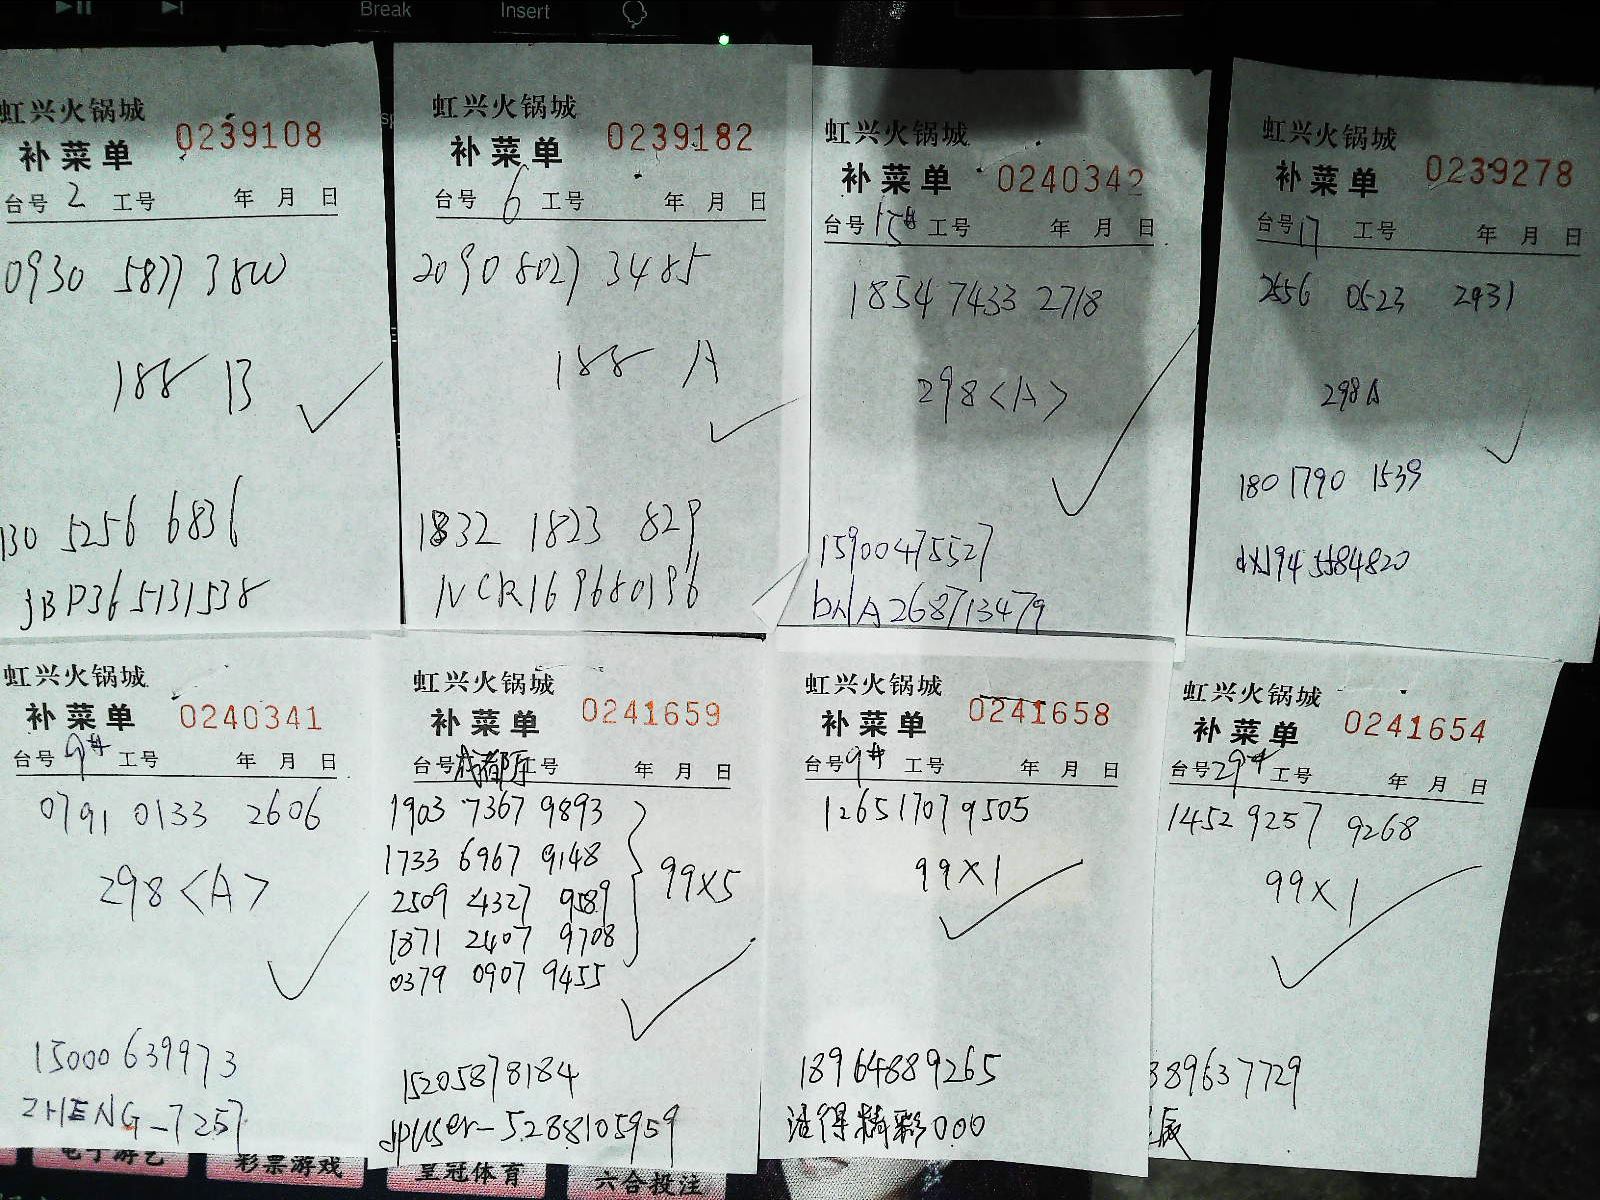 Break Insert
虹兴火锅城
补菜单 0239108
台号 2 工号 年 月 日
0930 5877 3800
188 B
130 5256 6836
JBP365131538
虹兴火锅城
补菜单 0239182
台号 6 工号 年 月 日
2090 8027 3485
188 A
1832 1823 829
NCR169680196
虹兴火锅城
补菜单 0240342
台号 15# 工号 年 月 日
1854 7433 2718
298<A>
15900475527
bNA268713479
虹兴火锅城
补菜单 0239278
台号 17 工号 年 月 日
2556 0523 2931
298A
180 1790 1539
虹兴火锅城
补菜单 0240341
台号 9# 工号 年 月 日
0791 0133 2606
298<A>
15000639973
ZHENG-7257
虹兴火锅城
补菜单 0241659
台号 工号 年 月 日
1903 7367 9893
1733 6967 9148
2509 4327 9589
1871 2407 9708
0379 0907 9455
99X5
15205878184
jpuser-5288105959
虹兴火锅城
补菜单 0241658
台号 9# 工号 年 月 日
1265 1707 9505
99X1
18964889265
活得精彩000
虹兴火锅城
补菜单 0241654
台号 29# 工号 年 月 日
1452 9257 9268
99X1
389637729
电子游艺 彩票游戏 皇冠体育 六合投注